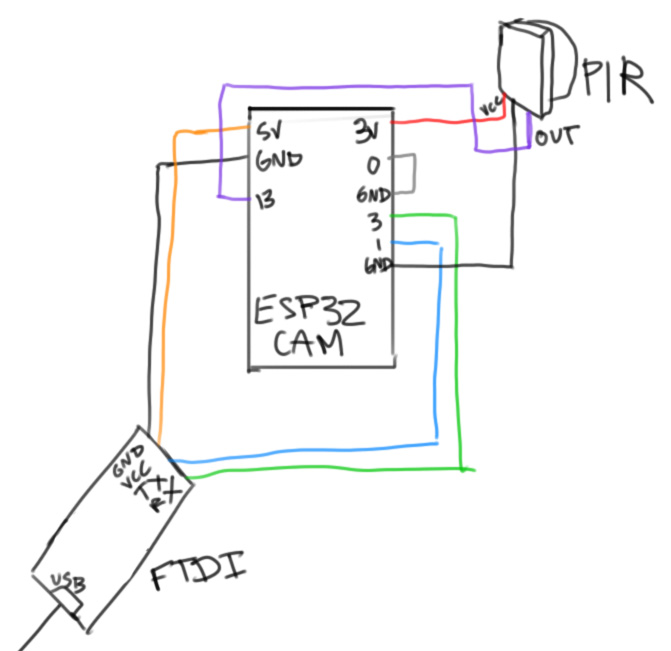 PIR
VCC
OUT
5V
3V
GND
0
13
GND
3
1
GND
ESP32
CAM
GND
VCC
TX
RX
USB
FTDI